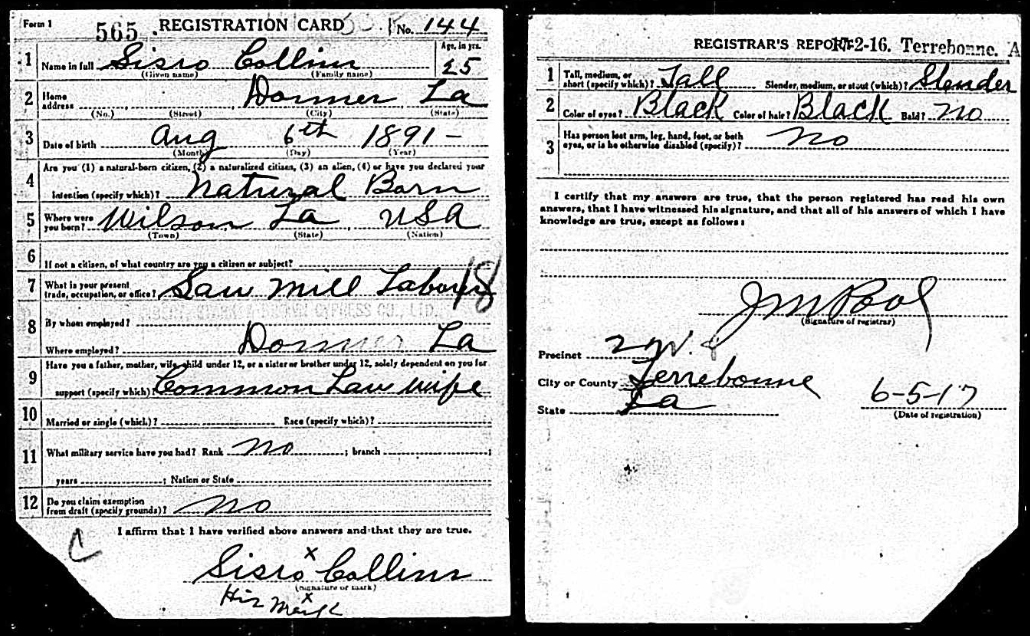 Form 1 565 REGISTRATION CARD No. 144
1 Name in full Sisro Collins Age, in yrs. 25
(Given name) (Family name)
2 Home address Donner La
(No.) (Street) (City) (State)
3 Date of birth Aug 6th 1891-
(Month) (Day) (Year)
4 Are you (1) a natural-born citizen, (2) a naturalized citizen, (3) an alien, (4) or have you declared your
intention (specify which)? Natural Born
5 Where were you born? Wilson La USA
(Town) (State) (Nation)
6 If not a citizen, of what country are you a citizen or subject?
7 What is your present trade, occupation, or office? Saw Mill Labor 18
8 By whom employed? CYPRESS CO., LTD.
Where employed? Donner La
9 Have you a father, mother, wife, child under 12, or a sister or brother under 12, solely dependent on you for
support (specify which)? Common Law Wife
10 Married or single (which)? Race (specify which)?
11 What military service have you had? Rank No ; branch ;
years ; Nation or State
12 Do you claim exemption from draft (specify grounds)? No
I affirm that I have verified above answers and that they are true.
x
Sisro Collins
(Signature or mark)
His x Mark
C
REGISTRAR'S REPORT 17-2-16. Terrebonne. A
1 Tall, medium, or short (specify which)? Tall Slender, medium, or stout (which)? Slender
2 Color of eyes? Black Color of hair? Black Bald? No
3 Has person lost arm, leg, hand, foot, or both eyes, or is he otherwise disabled (specify)? No
I certify that my answers are true, that the person registered has read his own
answers, that I have witnessed his signature, and that all of his answers of which I have
knowledge are true, except as follows:
J M Pool
(Signature of registrar)
Precinct 2 W. 8
City or County Terrebonne
State La 6-5-17
(Date of registration)